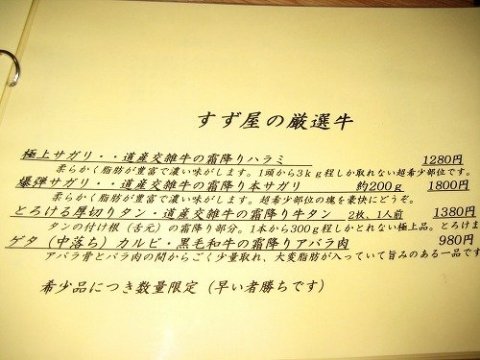 すず屋の厳選牛
極上サガリ・・道産交雑牛の霜降りハラミ 1280円
柔らかく脂肪が豊富で濃い味がします。1頭から3kg程しか取れない超希少部位です。
爆弾サガリ・・道産交雑牛の霜降り本サガリ 約200g 1800円
柔らかく脂肪が豊富で濃い味がします。超希少部位の塊を豪快にどうぞ。
とろける厚切りタン・道産交雑牛の霜降り牛タン 2枚、1人前 1380円
タンの付け根（舌元）の霜降り部分。1本から300g程しかとれない極上品。とろけま
ゲタ（中落ち）カルビ・黒毛和牛の霜降りアバラ肉 980円
アバラ骨とバラ肉の間からごく少量取れ、大変脂肪が入っていて旨みのある一品です
希少品につき数量限定（早い者勝ちです）